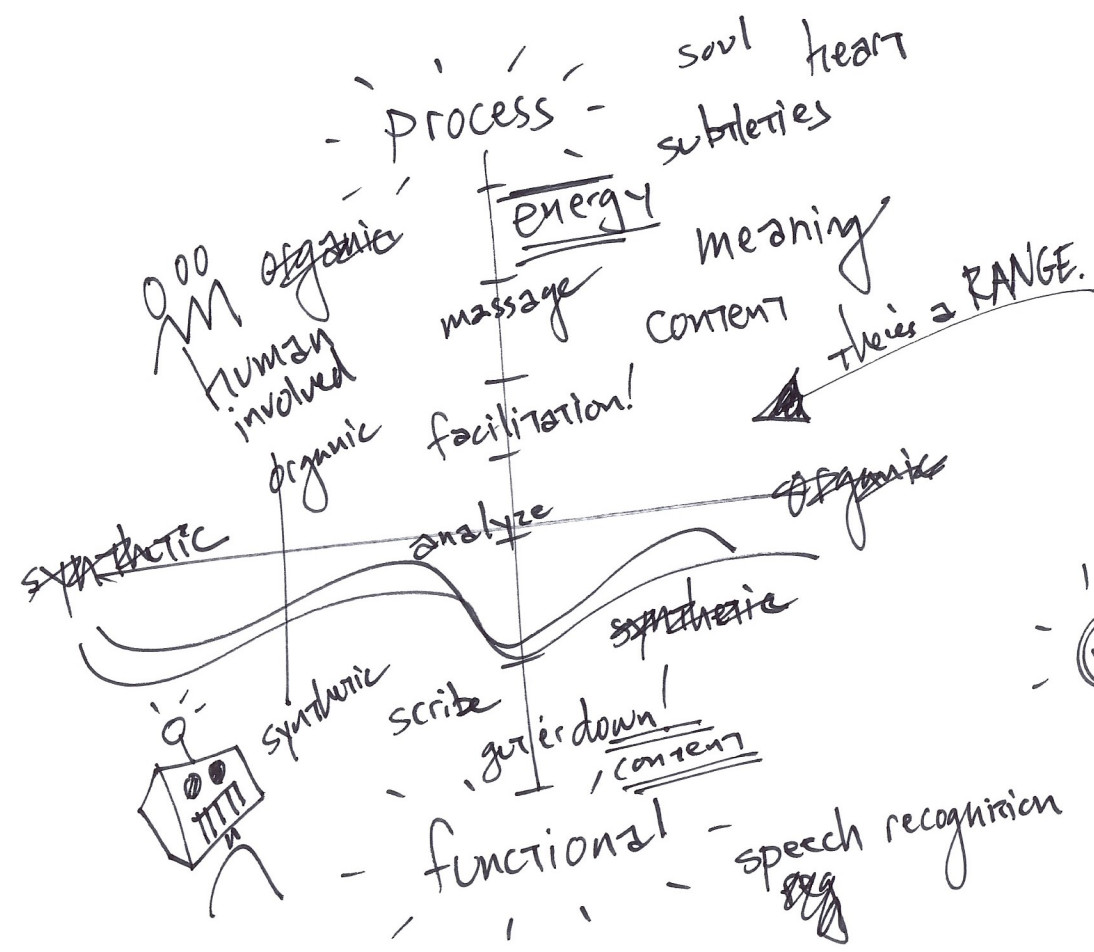 soul heart
process
subtleties
energy
organic
meaning
massage
content
ther's a RANGE.
human
involved
facilitation!
organic
organic
analyze
synthetic
synthetic
synthetic
scribe
get'er down!
content
functional
speech recognition